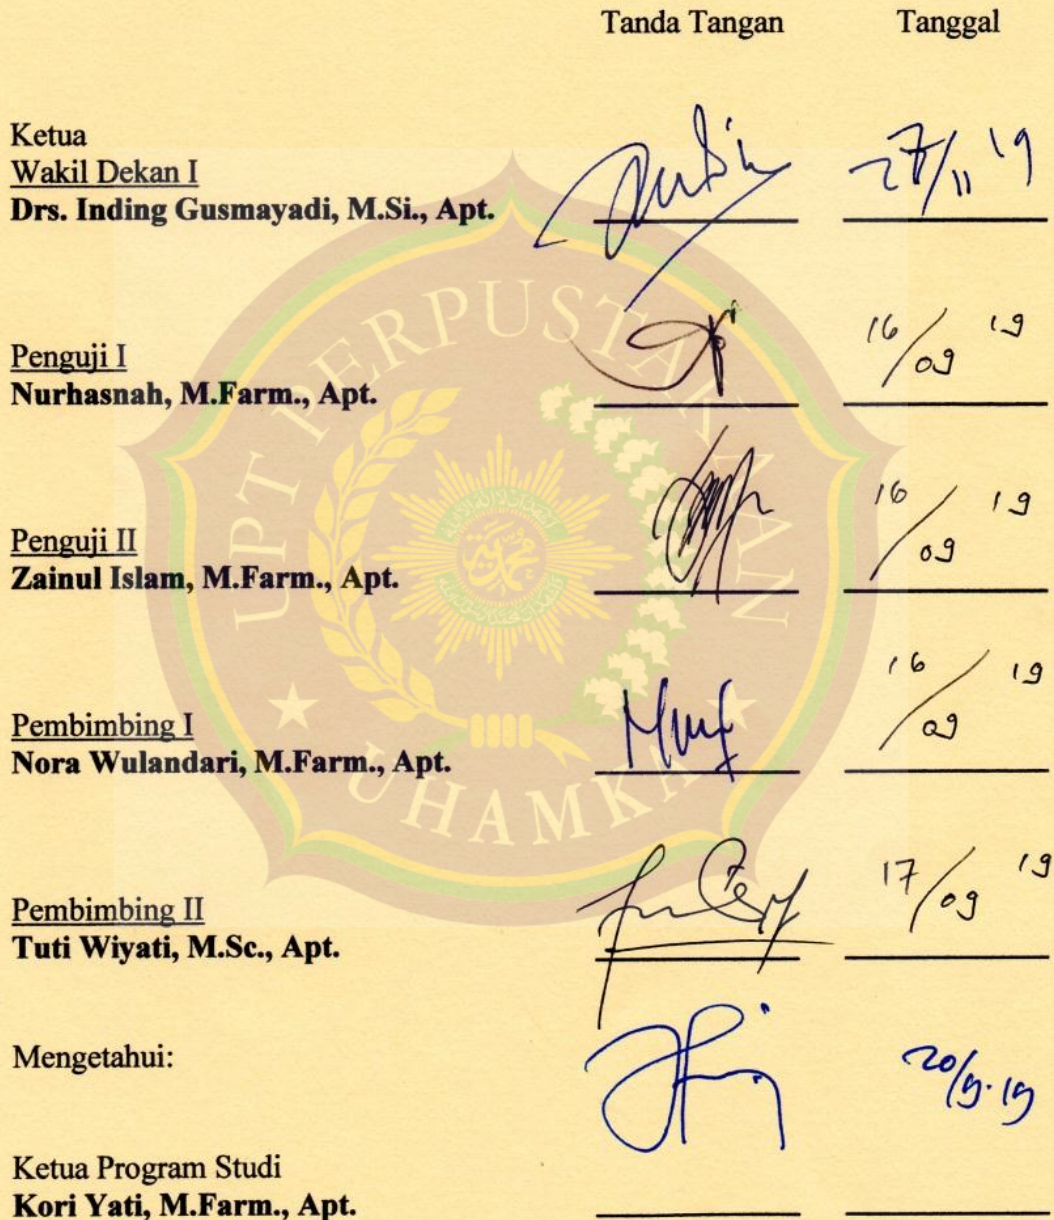 Tanda Tangan Tanggal
Ketua
Wakil Dekan I
Drs. Inding Gusmayadi, M.Si., Apt. 27/11 '19
Penguji I 16/09 19
Nurhasnah, M.Farm., Apt.
Penguji II 16/09 19
Zainul Islam, M.Farm., Apt.
Pembimbing I 16/09 19
Nora Wulandari, M.Farm., Apt.
Pembimbing II 17/09 19
Tuti Wiyati, M.Sc., Apt.
Mengetahui: 20/9.19
Ketua Program Studi
Kori Yati, M.Farm., Apt.
UPT PERPUSTAKAAN
UHAMKA